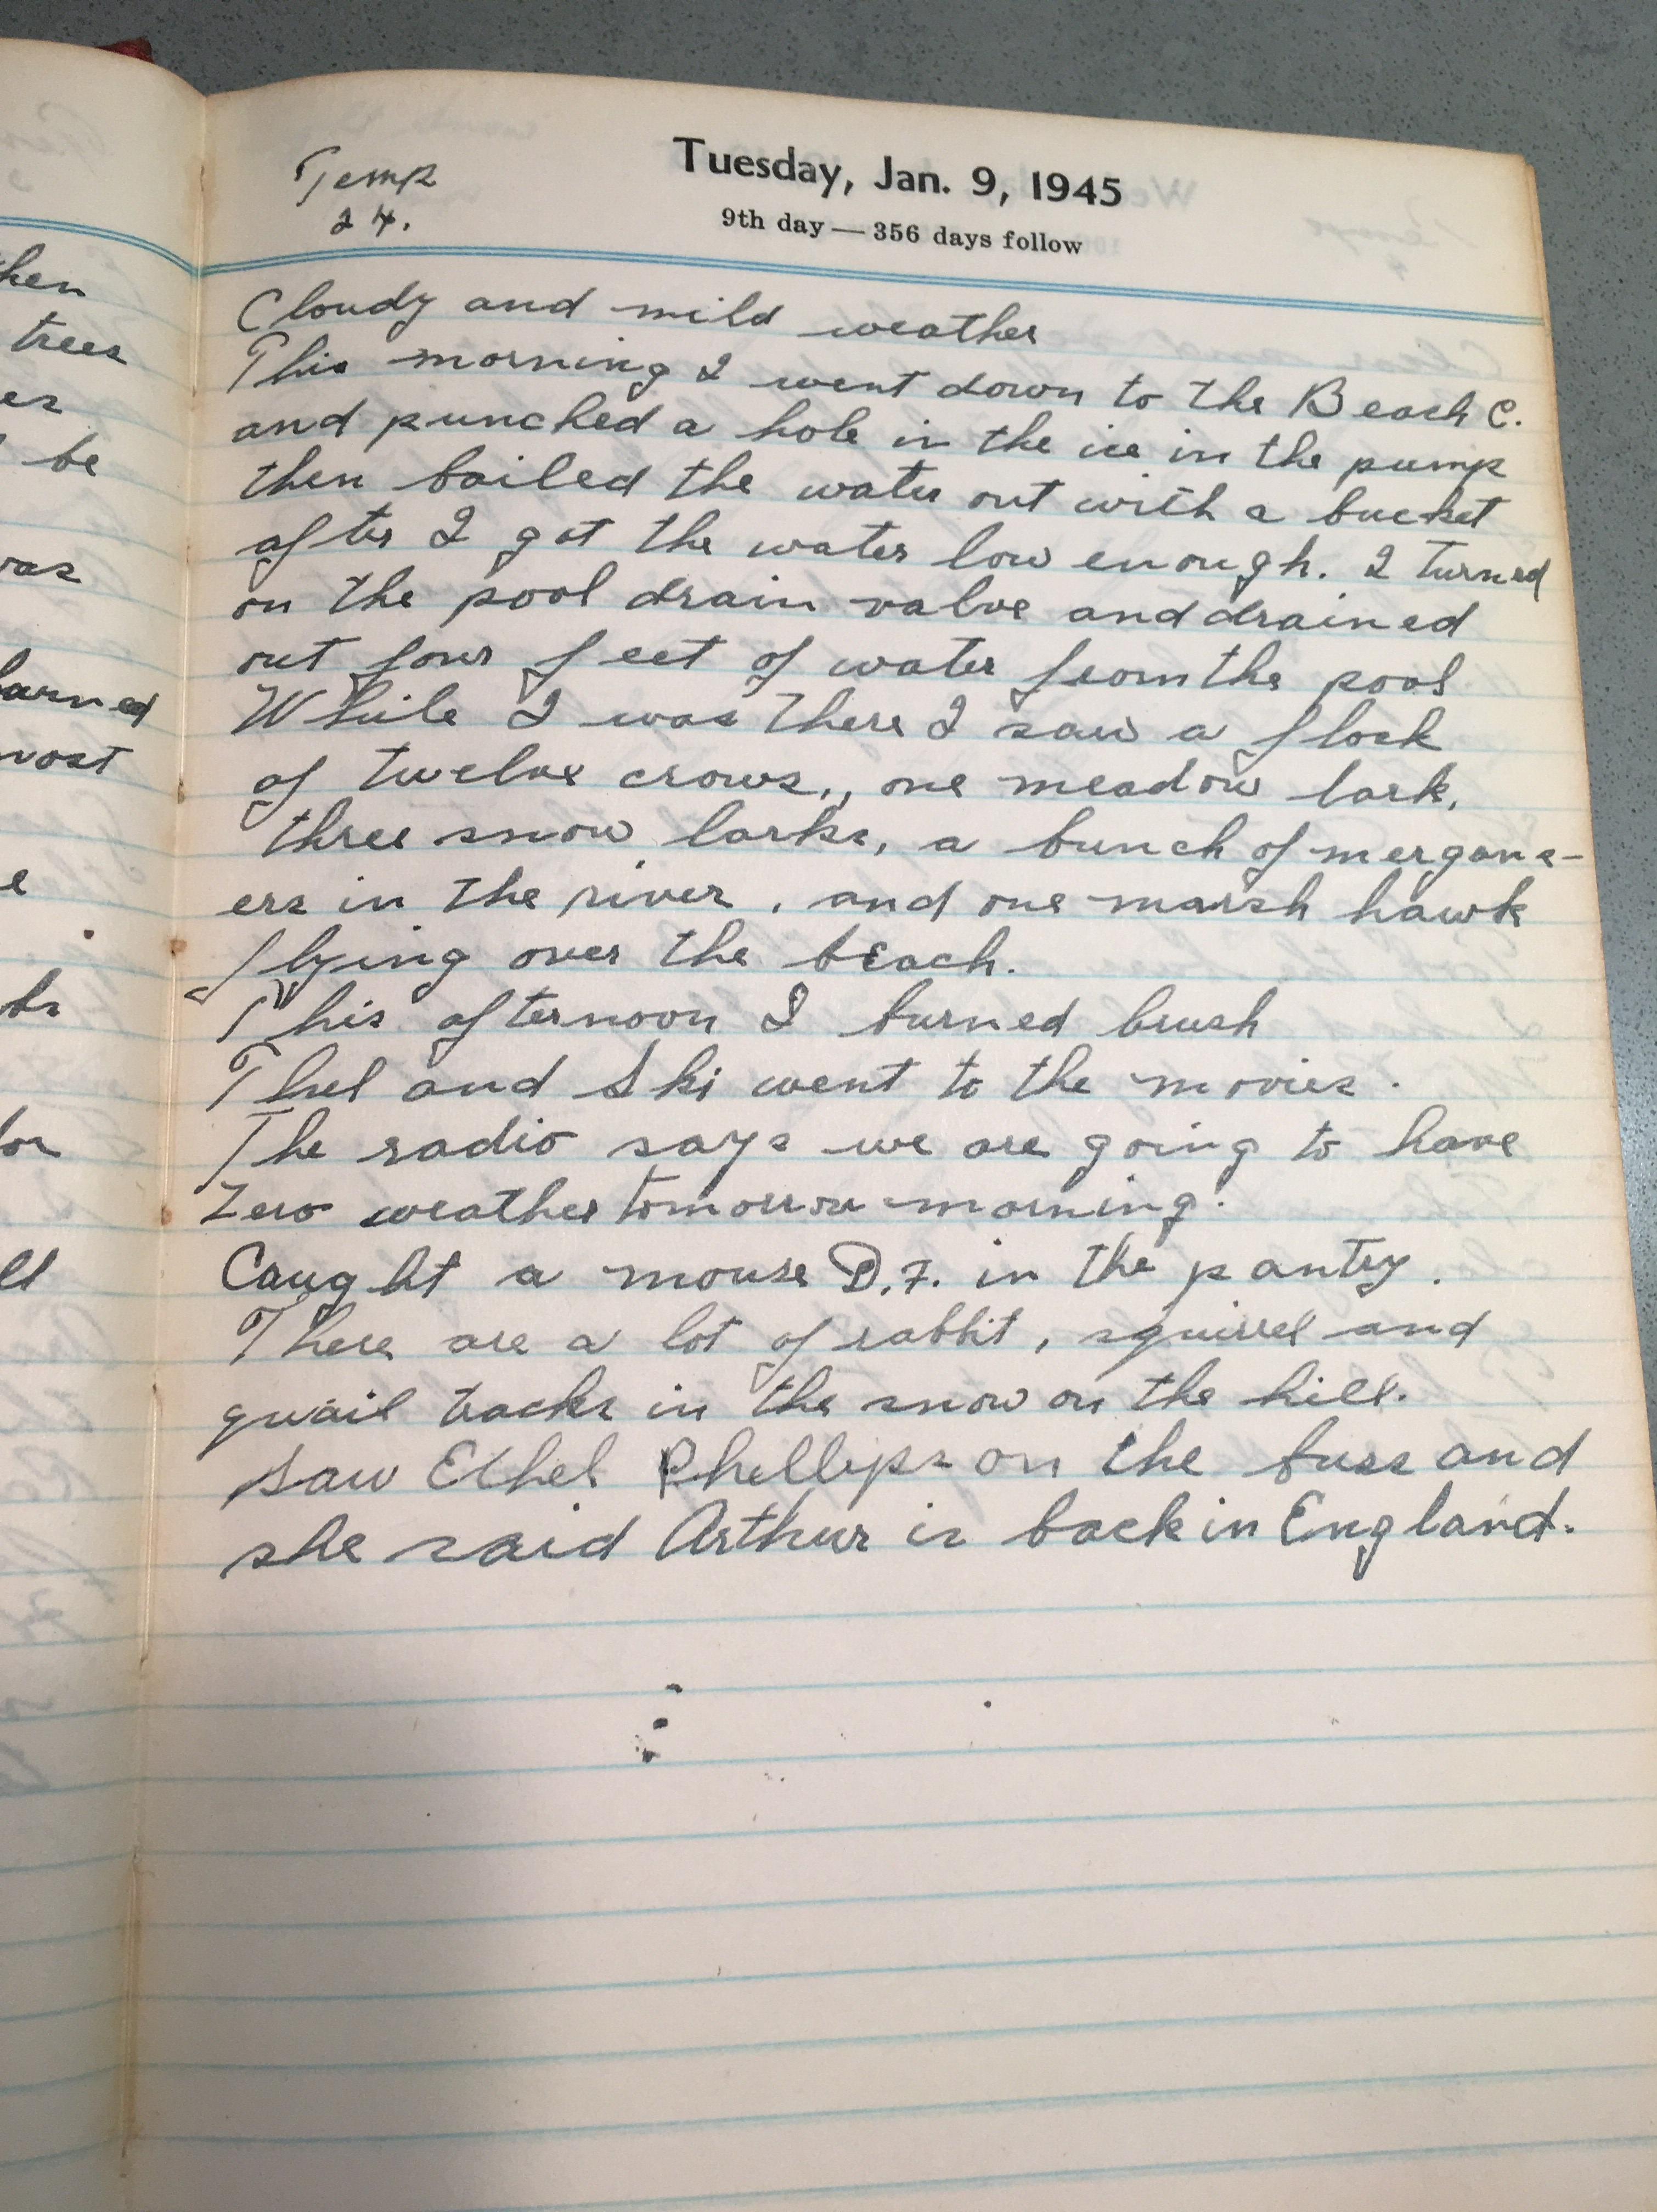 hen
trees
er
be
was
learned
most
e
for
ll
Temp
24.
Tuesday, Jan. 9, 1945
9th day — 356 days follow
Cloudy and mild weather
This morning I went down to the Beach C.
and punched a hole in the ice in the pump
then bailed the water out with a bucket
after I got the water low enough. I turned
on the pool drain valve and drained
out four feet of water from the pool
While I was there I saw a flock
of twelve crows., one meadow lark,
three snow larks, a bunch of mergans-
ers in the river, and one marsh hawk
flying over the beach.
This afternoon I burned brush
Thel and Ski went to the movies.
The radio says we are going to have
Zero weather tomorrow morning.
Caught a mouse D.F. in the pantry.
There are a lot of rabbit, squirrel and
quail tracks in the snow on the hill.
Saw Ethel Phellips on the buss and
she said Arthur is back in England.